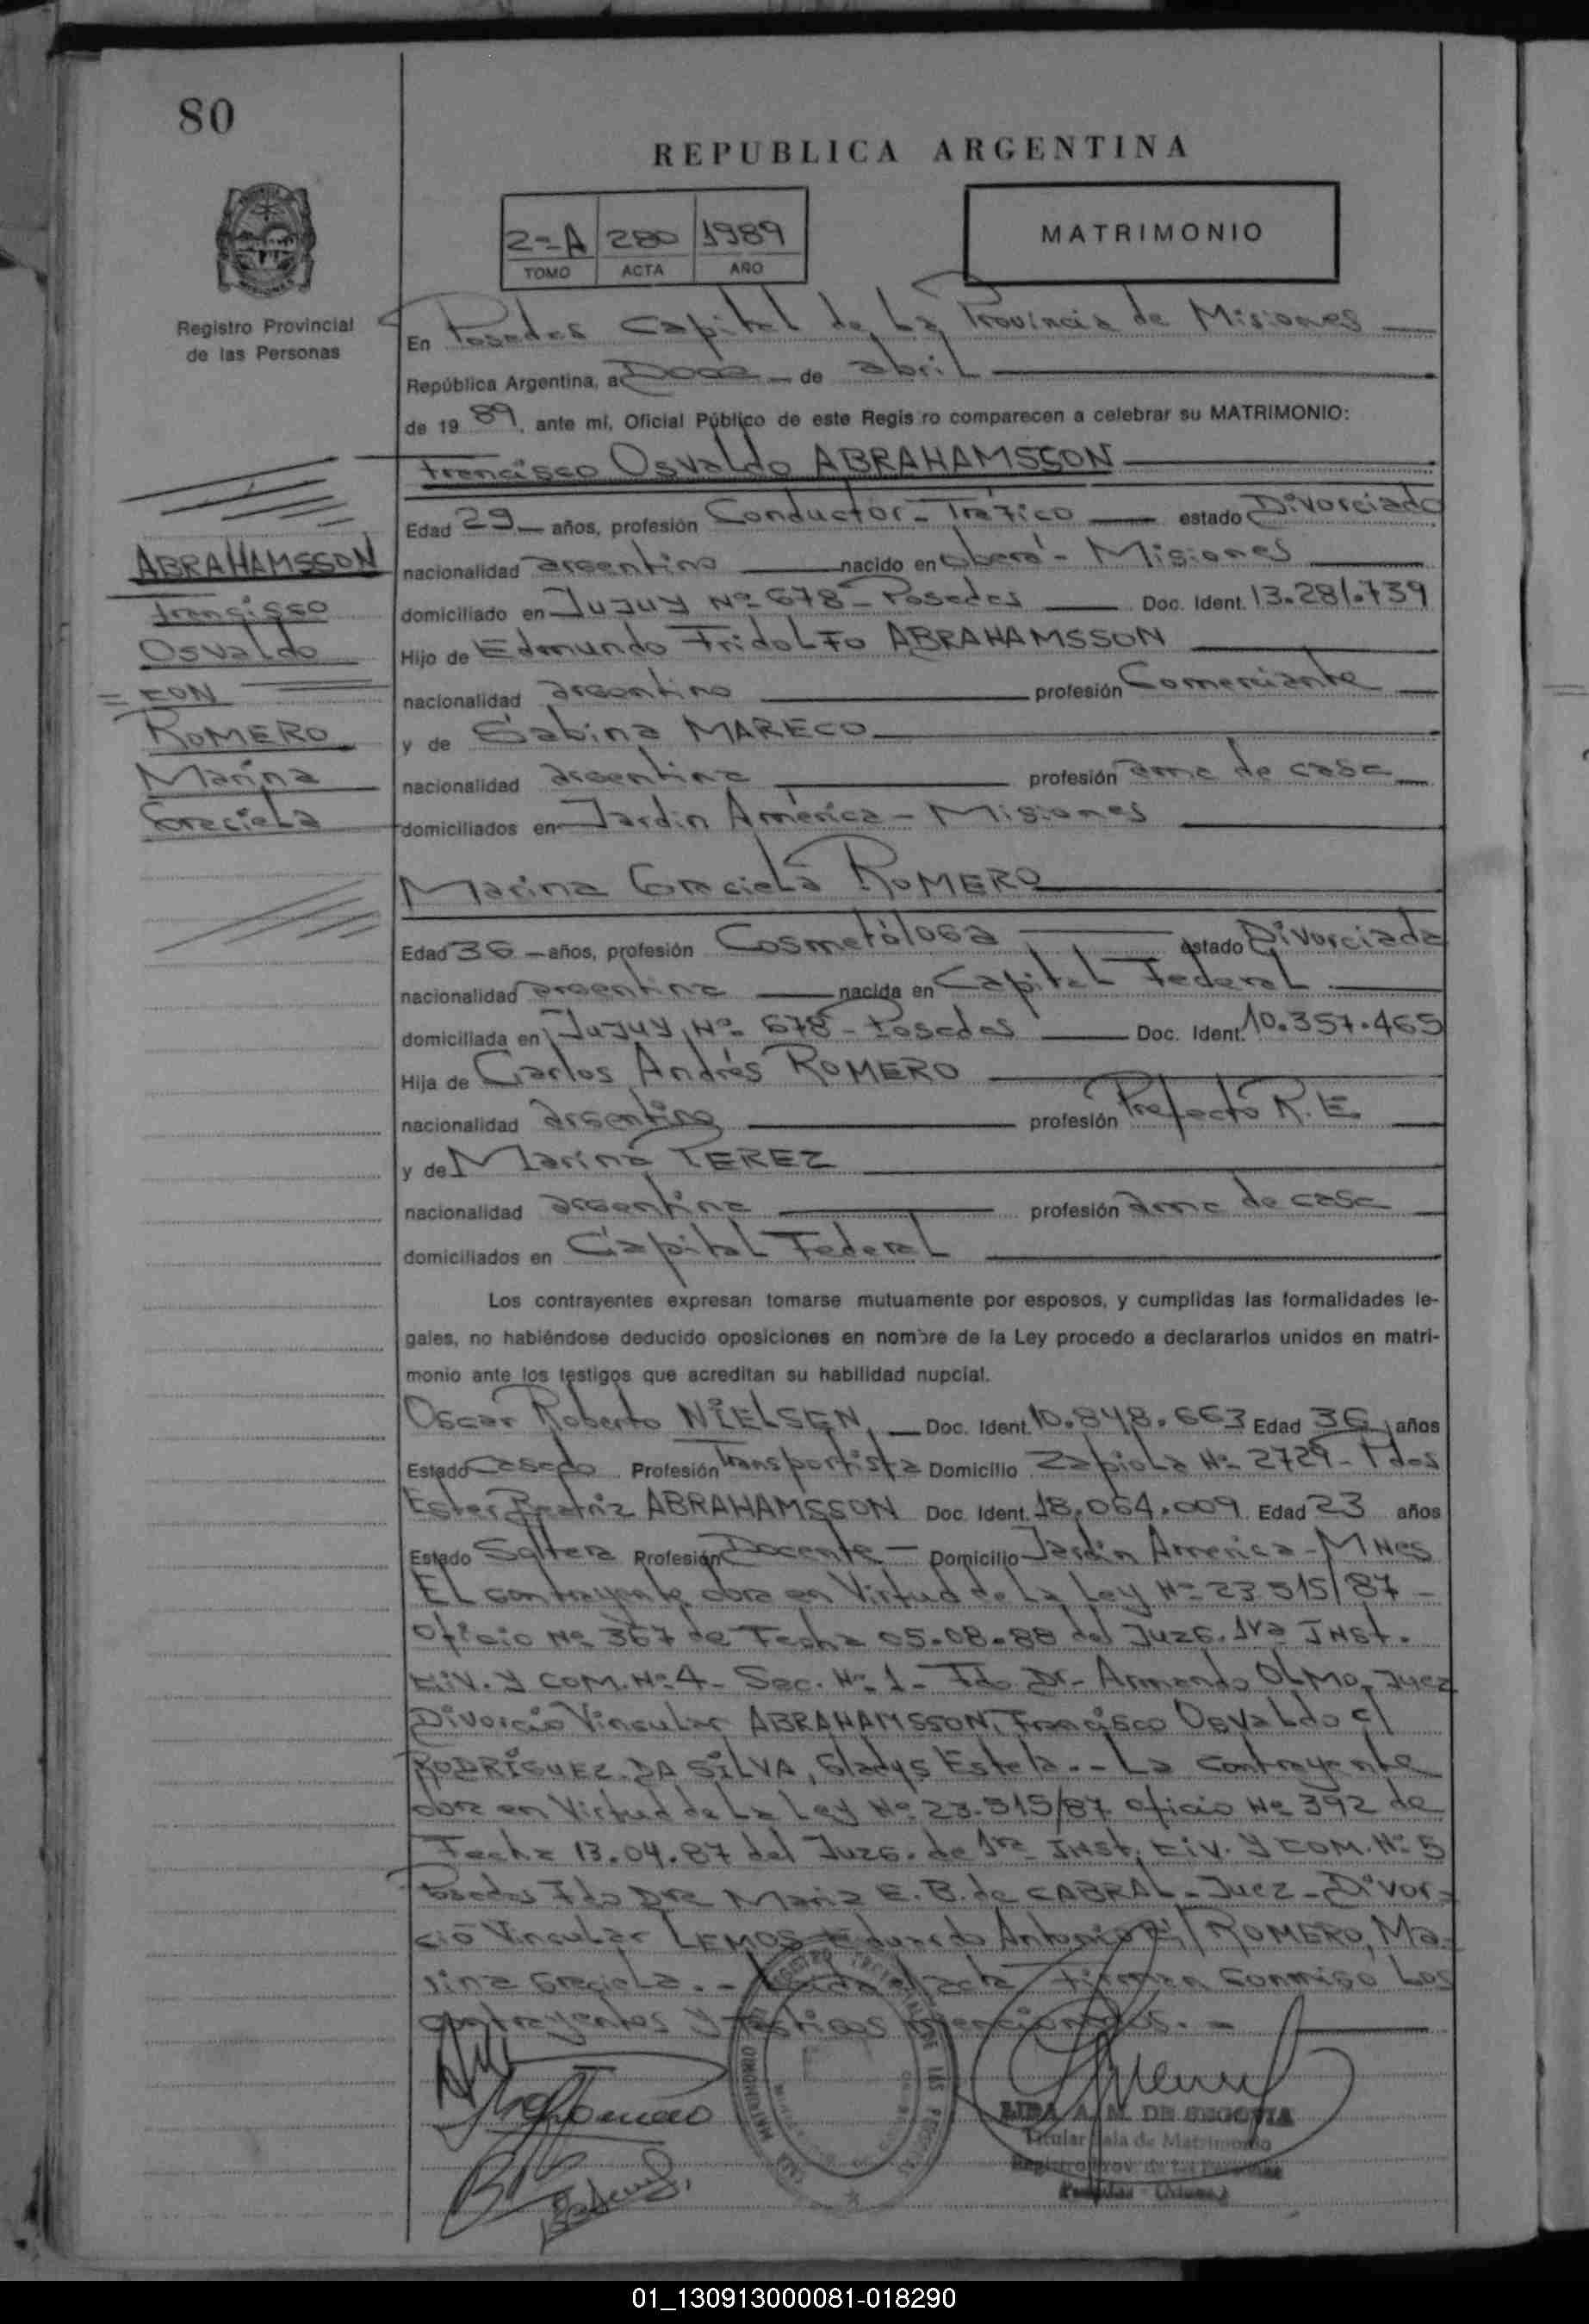 80
REPUBLICA ARGENTINA
2=A 280 1989
TOMO ACTA AÑO
MATRIMONIO
Registro Provincial
de las Personas
En Posadas Capital de La Provincia de Misiones
República Argentina, a Doce de abril
de 1989, ante mí, Oficial Público de este Regis ro comparecen a celebrar su MATRIMONIO:
Francisco Osvaldo ABRAHAMSSON
Edad 29 años, profesión Conductor - Tráfico estado Divorciado
nacionalidad argentino nacido en Oberá - Misiones
domiciliado en Jujuy Nº 678 - Posadas Doc. Ident. 13.281.739
Hijo de Edmundo Fridolfo ABRAHAMSSON
nacionalidad argentino profesión Comerciante
y de Sabina MARECO
nacionalidad argentina profesión ama de casa
domiciliados en Jardin América - Misiones
ABRAHAMSSON
Francisco
Osvaldo
= CON =
ROMERO
Marina
Graciela
Marina Graciela ROMERO
Edad 36 años, profesión Cosmetóloga estado Divorciada
nacionalidad argentina nacida en Capital Federal
domiciliada en Jujuy Nº 678 - Posadas Doc. Ident. 10.357.465
Hija de Carlos Andrés ROMERO
nacionalidad argentino profesión Prefecto R.E.
y de Marina PEREZ
nacionalidad argentina profesión ama de casa
domiciliados en Capital Federal
Los contrayentes expresan tomarse mutuamente por esposos, y cumplidas las formalidades le-
gales, no habiéndose deducido oposiciones en nombre de la Ley procedo a declararlos unidos en matri-
monio ante los testigos que acreditan su habilidad nupcial.
Oscar Roberto NIELSEN Doc. Ident. 10.848.663 Edad 36 años
Estado Casado Profesión Transportista Domicilio Zapiola Nº 2729 - Pdas
Ester Beatriz ABRAHAMSSON Doc. Ident. 18.064.009 Edad 23 años
Estado Soltera Profesión Docente - Domicilio Jardín América - Mnes
El contrayente obra en Virtud de La Ley Nº 23.515/87 -
Oficio Nº 367 de Fecha 05.08.88 del Juzg. 1ra Inst.
Civ. y Com. Nº 4 - Sec. Nº 1 - Fdo Dr - Armando OLMO - Juez
Divorcio Vincular ABRAHAMSSON, Francisco Osvaldo c/
RODRIGUEZ DA SILVA, Gladys Estela. - La contrayente
obra en Virtud de La Ley Nº 23.515/87 oficio Nº 392 de
Fecha 13.04.87 del Juzg. de 1ra Inst. Civ. y Com. Nº 5
Posadas Fdo Dra Maria E. B. de CABRAL - Juez - Divor-
cio Vincular LEMOS Eduardo Antonio c/ ROMERO, Ma-
rina Graciela. - Leida el acta firman conmigo Los
contrayentes y testigos mencionados. -
LIDA A. M. DE SEGOVIA
Titular Sala de Matrimonio
Registro Prov. de las Personas
01_130913000081-018290